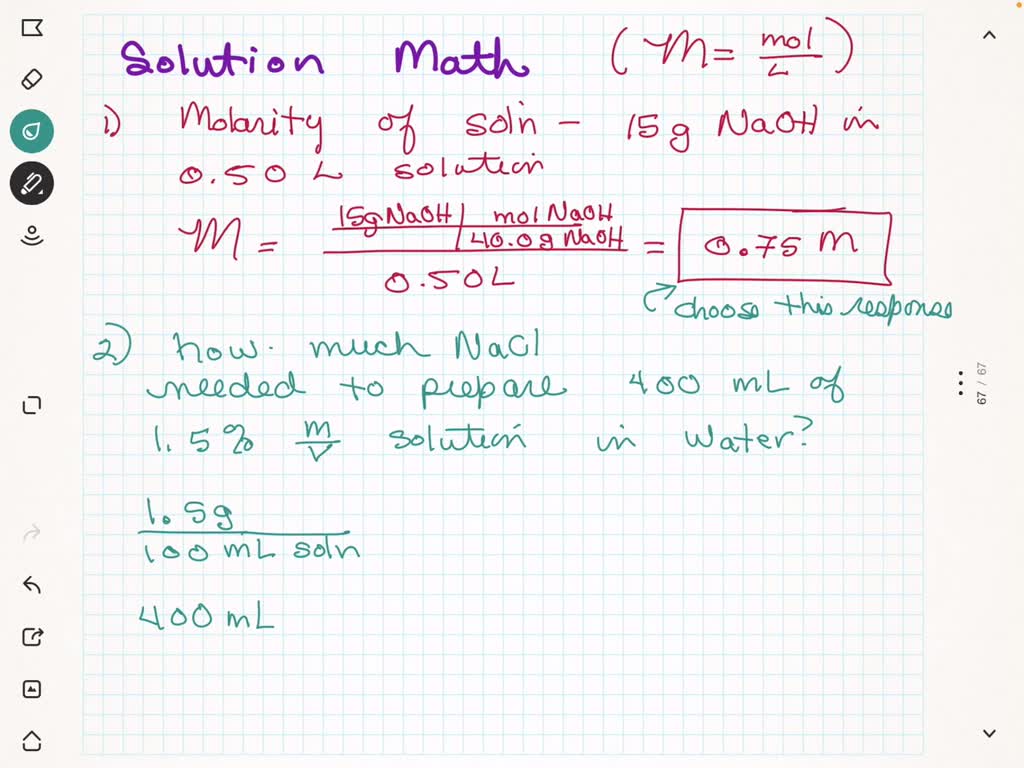 Solution Math (M = mol/L)
1) Molarity of sol'n - 15g NaOH in
0.50 L solution
M = 15g NaOH | mol NaOH / 40.0g NaOH / 0.50L = 0.75 M
choose this response
2) how much NaCl
needed to prepare 400 mL of
1.5% m/v solution in water?
1.5g
100 mL soln
400 mL
67 / 67